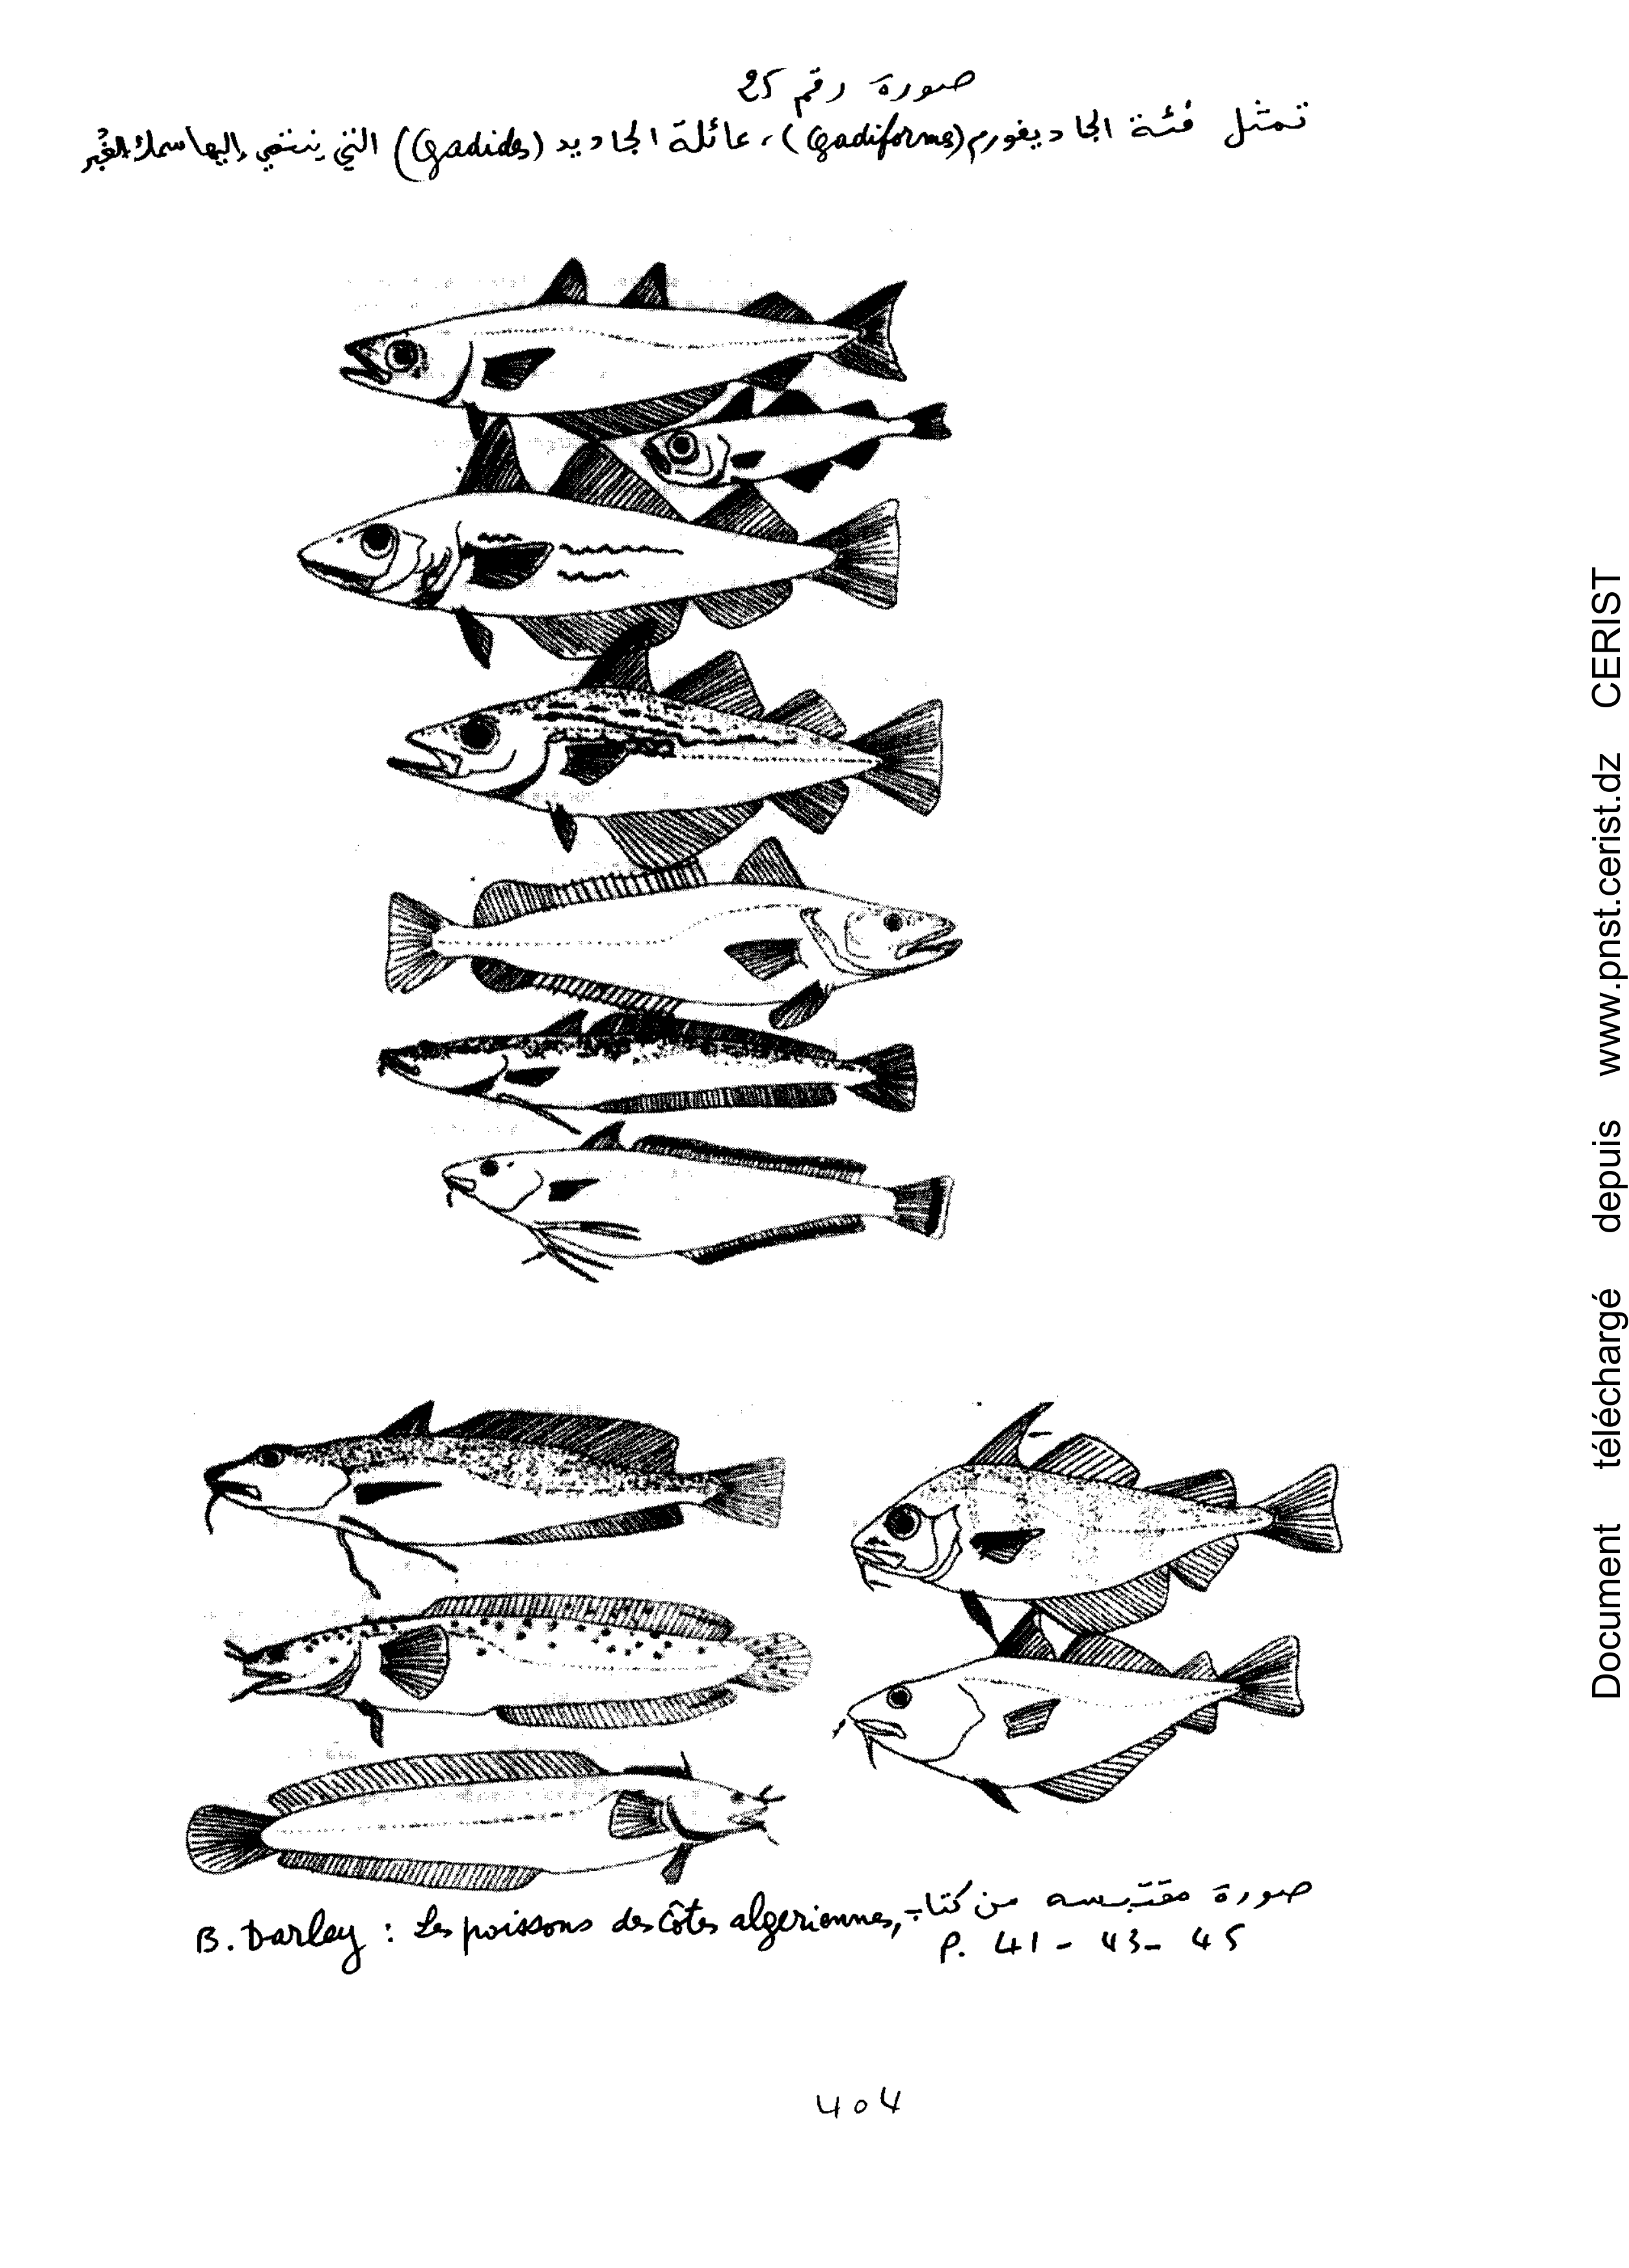 صورة رقم 25
تمثل فئة الجاديفورم (Gadiforms)، عائلة الجاديد (Gadidés) التي ينتمي إليها سمك
صورة مقتبسة من كتاب
B. Darley : Les poissons des côtes algeriennes,
P. 41 - 43 - 45
404
Document téléchargé depuis www.pnst.cerist.dz CERIST